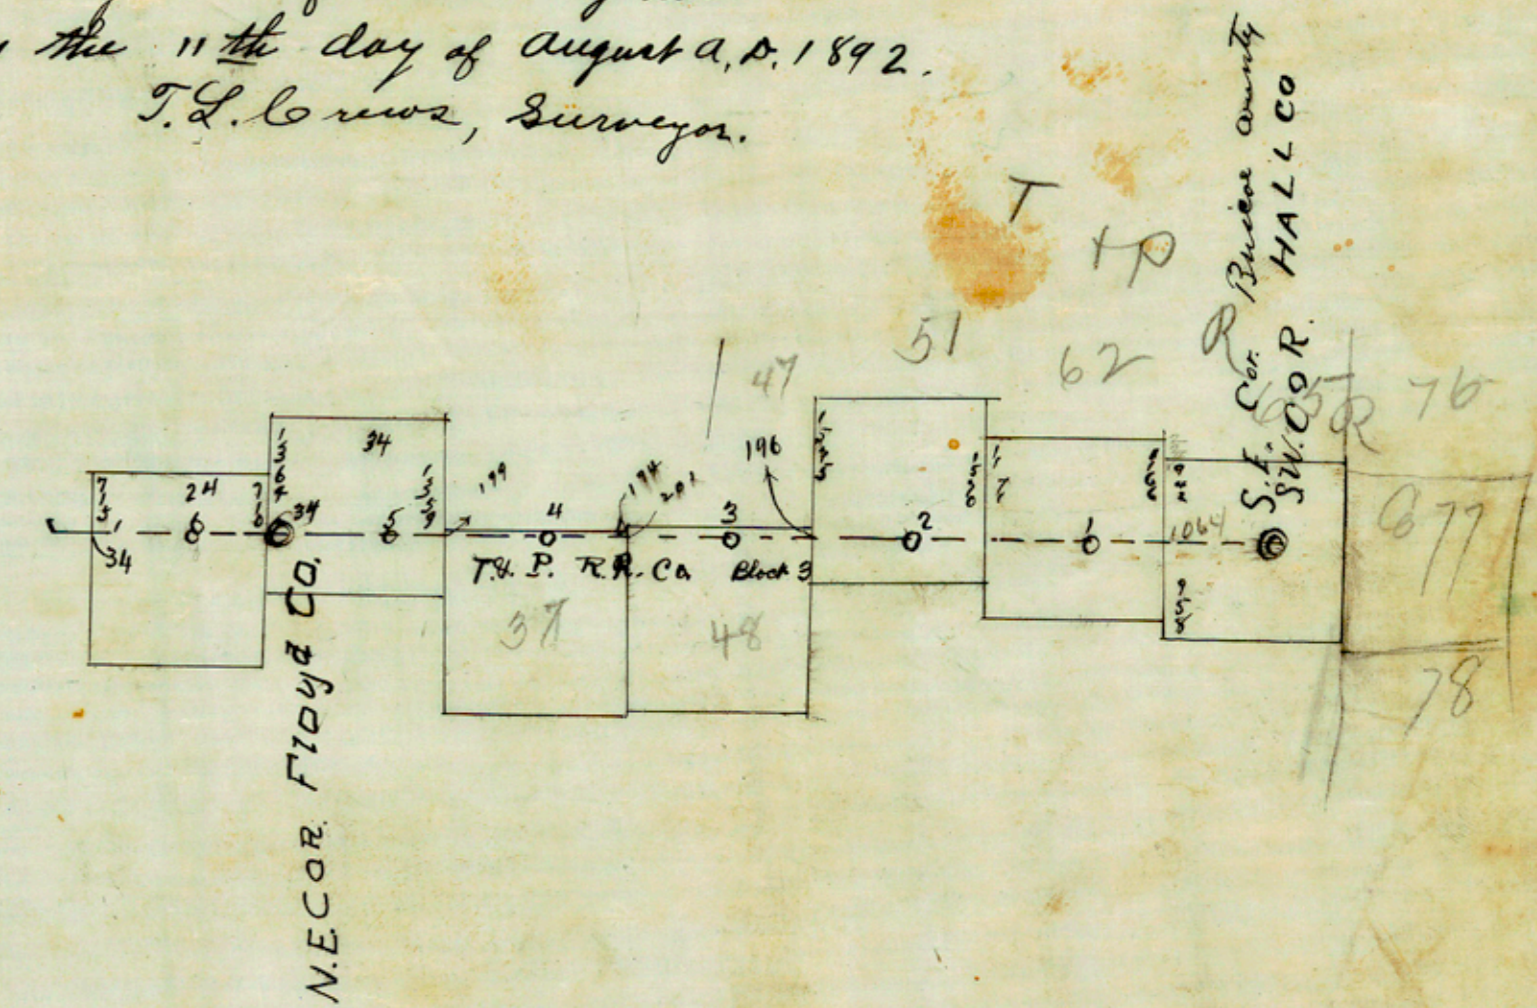 the 11th day of August A.D. 1892.
T.L. Crews, Surveyor.
T
+P
R
S.E. Cor. Briscoe County
SW. COR. HALL CO
47
51
62
65
R
76
34
24
34
199
194
201
196
6
5
4
3
2
1
1064
34
T.&. P. R.R. Co. Block 3
37
48
77
958
78
N.E. COR. Floyd Co.